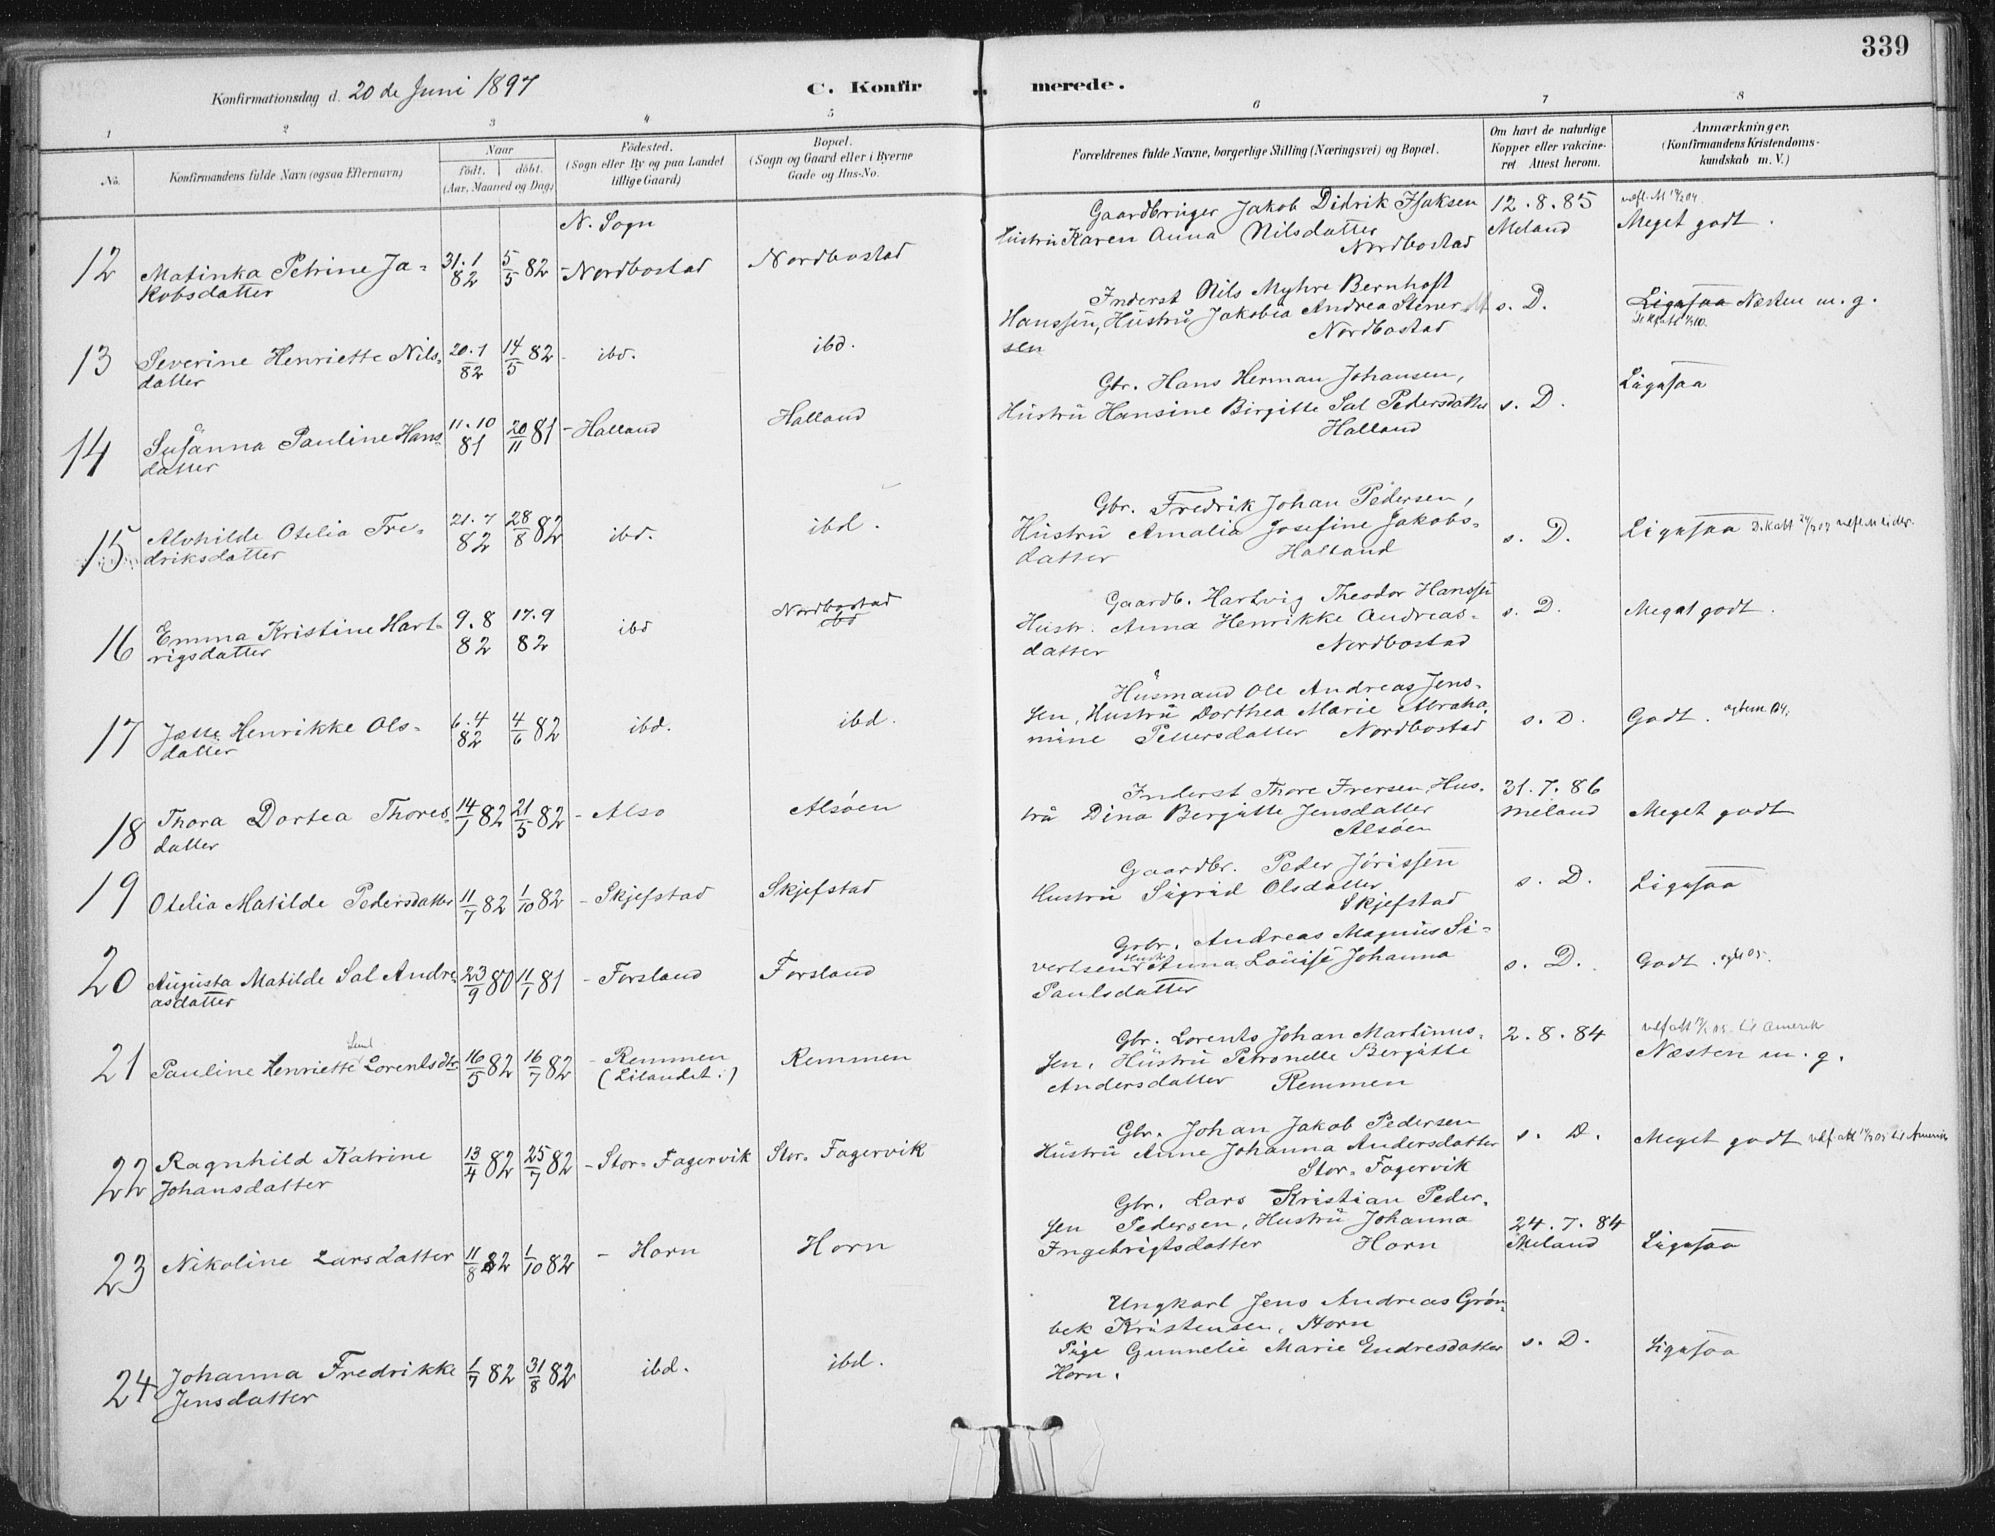 339
Konfirmationsdag d. 20 de Juni 1897
C. Konfirmerede.
1 2 3 4 5 6 7 8
No.
Konfirmandens fulde Navn (ogsaa Efternavn)
Naar
født. døbt.
(Aar, Maaned og Dag)
Fødested.
(Sogn eller By og paa Landet
tillige Gaard)
Bopæl.
(Sogn og Gaard eller i Byerne
Gade og Hus-No.
Forældrenes fulde Navne, borgerlige Stilling (Næringsvei) og Bopæl.
Om havt de naturlige
Kopper eller vakcine-
ret Attest herom.
Anmærkninger.
(Konfirmandens Kristendoms-
kundskab m. V.)
N. Sogn
12 Matinka Petrine Ja-
kobsdatter
31.1 82 5/5 82 - Nordbostad Nordbostad
Gaardbruger Jakob Didrik Isaksen
Hustru Karen Anna Nilsdatter
Nordbostad
12.8.85
Meland
Meget godt.
13 Severine Henriette Nils-
datter
20.1 82 14/5 82 - ibd. ibd.
Inderst Nils Myhre Bernhoft
Hanssen, Hustru Jakobia Andrea Stener
sen Nordbostad
s. D.
Ligesaa Næsten m. g.
14 Susanna Pauline Hans-
datter
11.10 81 20/11 81 - Halland Halland
Gbr. Hans Herman Johansen,
Hustru Hansine Birgitte Sal Pedersdatter
Halland
s. D.
Ligesaa
15 Alvhilde Otelia Fre-
driksdatter
21.7 82 28/8 82 ibd. ibd.
Gbr. Fredrik Johan Pedersen,
Hustru Amalia Josefine Jakobs-
datter Halland
s. D.
Ligesaa
16 Emma Kristine Hart-
vigsdatter
9.8 82 17.9 82 ibd Nordbostad
ibd
Gaardb. Hartvig Theodor Hanssen
Hustr. Anna Henrikke Andreas-
datter Nordbostad
s. D.
Meget godt.
17 Jette Henrikke Ols-
datter
6.4 82 4/6 82 ibd. ibd.
Husmand Ole Andreas Jens-
sen, Hustru Dorthea Marie Abraha
mine Pettersdatter Nordbostad
s. D.
Godt.
18 Thora Dortea Thores-
datter
14/1 82 21/5 82 - Alsø Alsøen
Inderst Thore Iversen, Hus-
tru Dina Bergitte Jensdatter
Alsøen
31.7.86
Meland
Meget godt
19 Otelia Matilde Pedersdatter
11/7 82 1/10 82 - Skjefstad Skjefstad
Gaardbr. Peder Jørissen
Hustru Sigrid Olsdatter
Skjefstad
s. D.
Ligesaa
20 Augusta Matilde Sal Andre-
asdatter
23/9 80 11/1 81 - Forsland Forsland
Grbr. Andreas Magnus Si-
vertsen Hustr. Anna Louise Johanna
Paulsdatter
s. D.
Godt.
21 Pauline Henriette Lorentsdtr
16/5 82 16/7 82 - Remmen
(Lilandet.) Remmen
Gbr. Lorents Johan Martinus-
sen, Hustru Petronelle Bergitte
Andersdatter Remmen
2.8.84
til Amerik
Næsten m. g.
22 Ragnhild Katrine
Johansdatter
13/4 82 25/7 82 - Stor-Fagervik Stor-Fagervik
Gbr. Johan Jakob Pedersen
Hustru Anne Johanna Andersdatter
Stor-Fagervik
s. D.
Meget godt til Amerik
23 Nikoline Larsdatter
11/8 82 1/10 82 - Horn Horn
Gbr. Lars Kristian Peder-
sen Pedersen, Hustru Johanna
Ingebrigtsdatter Horn
24.7.84
Meland
Ligesaa
24 Johanna Fredrikke
Jensdatter
1/7 82 31/8 82 ibd. ibd.
Ungkarl Jens Andreas Grøn-
bek Kristensen, Horn
Pige Gunnelie Marie Endresdatter
Horn.
s. D.
Ligesaa